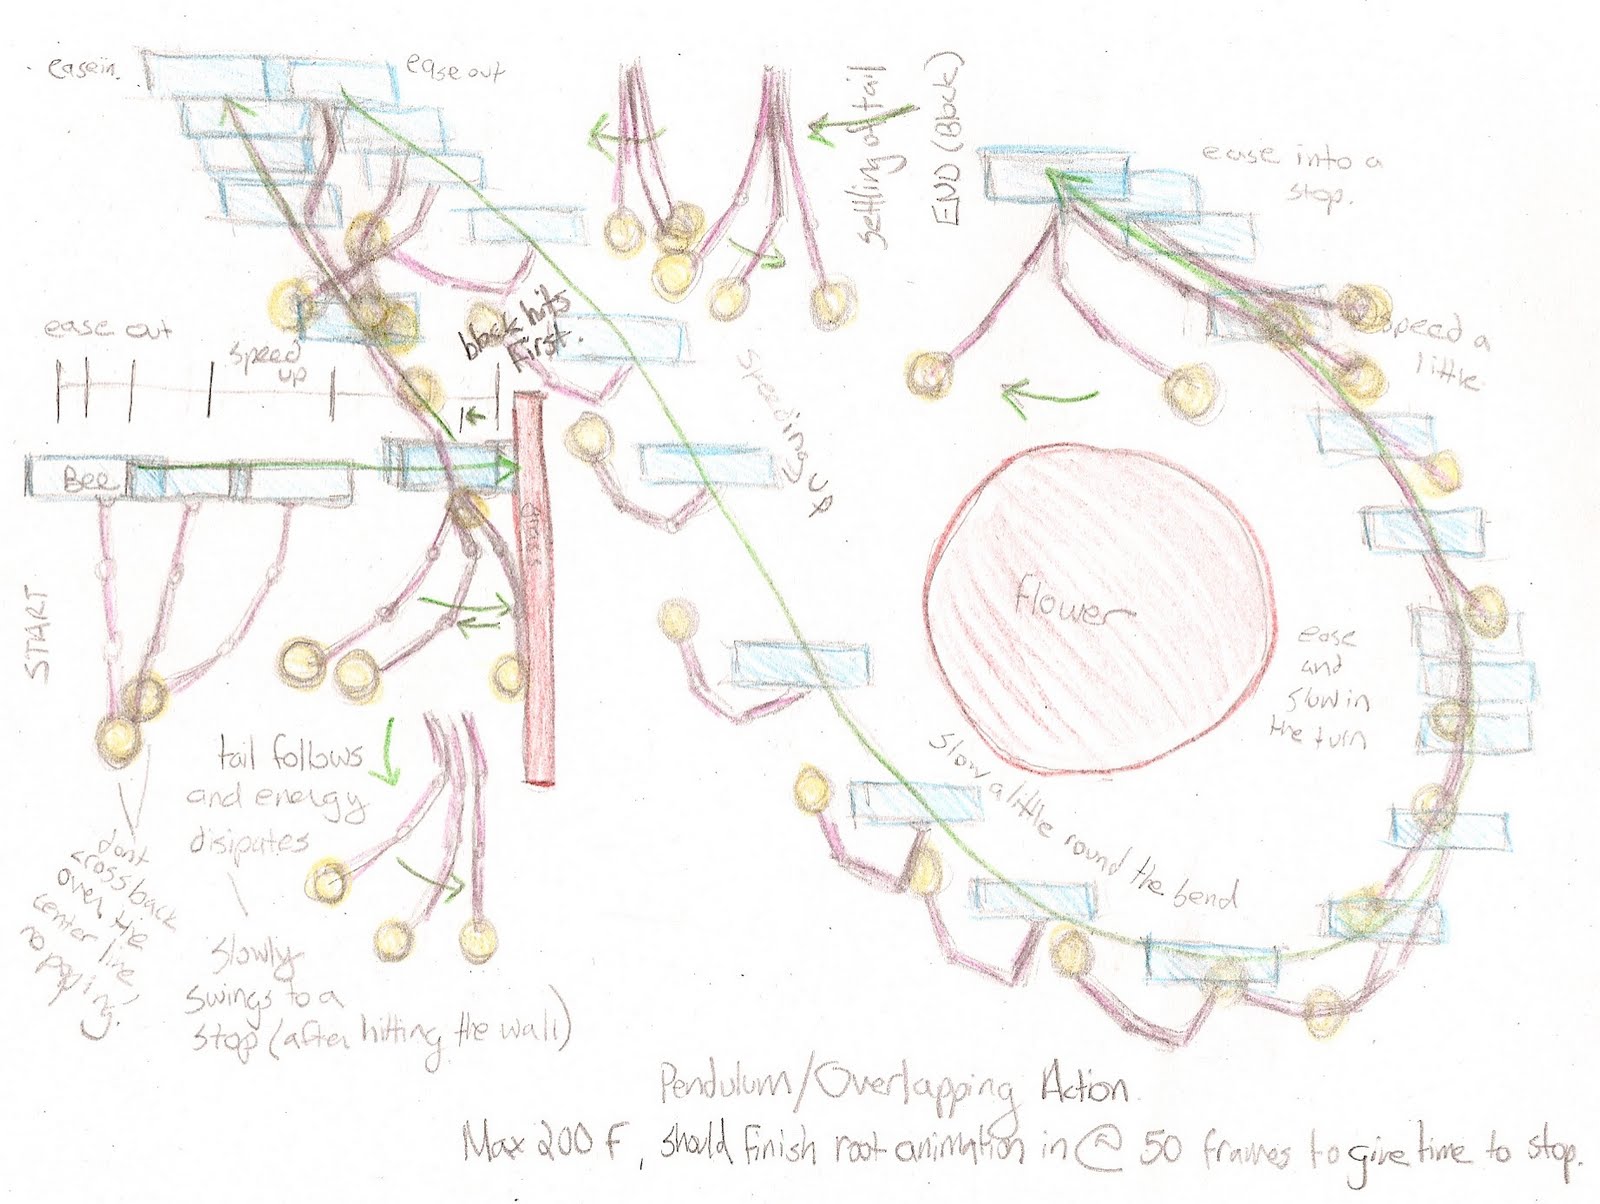 easein.
ease out
Settling of tail
END (Block)
ease into a
stop.
speed a
little.
ease out
speed
up
block hits
First.
Speeding up
Bee
glass
START
flower
ease
and
slow in
the turn
slow a little round the bend
tail follows
and energy
disipates
dont
cross back
over the
center line
no popping.
slowly
swings to a
stop (after hitting the wall)
Pendulum/Overlapping Action
Max 200 F, should finish root animation in @ 50 frames to give time to stop.